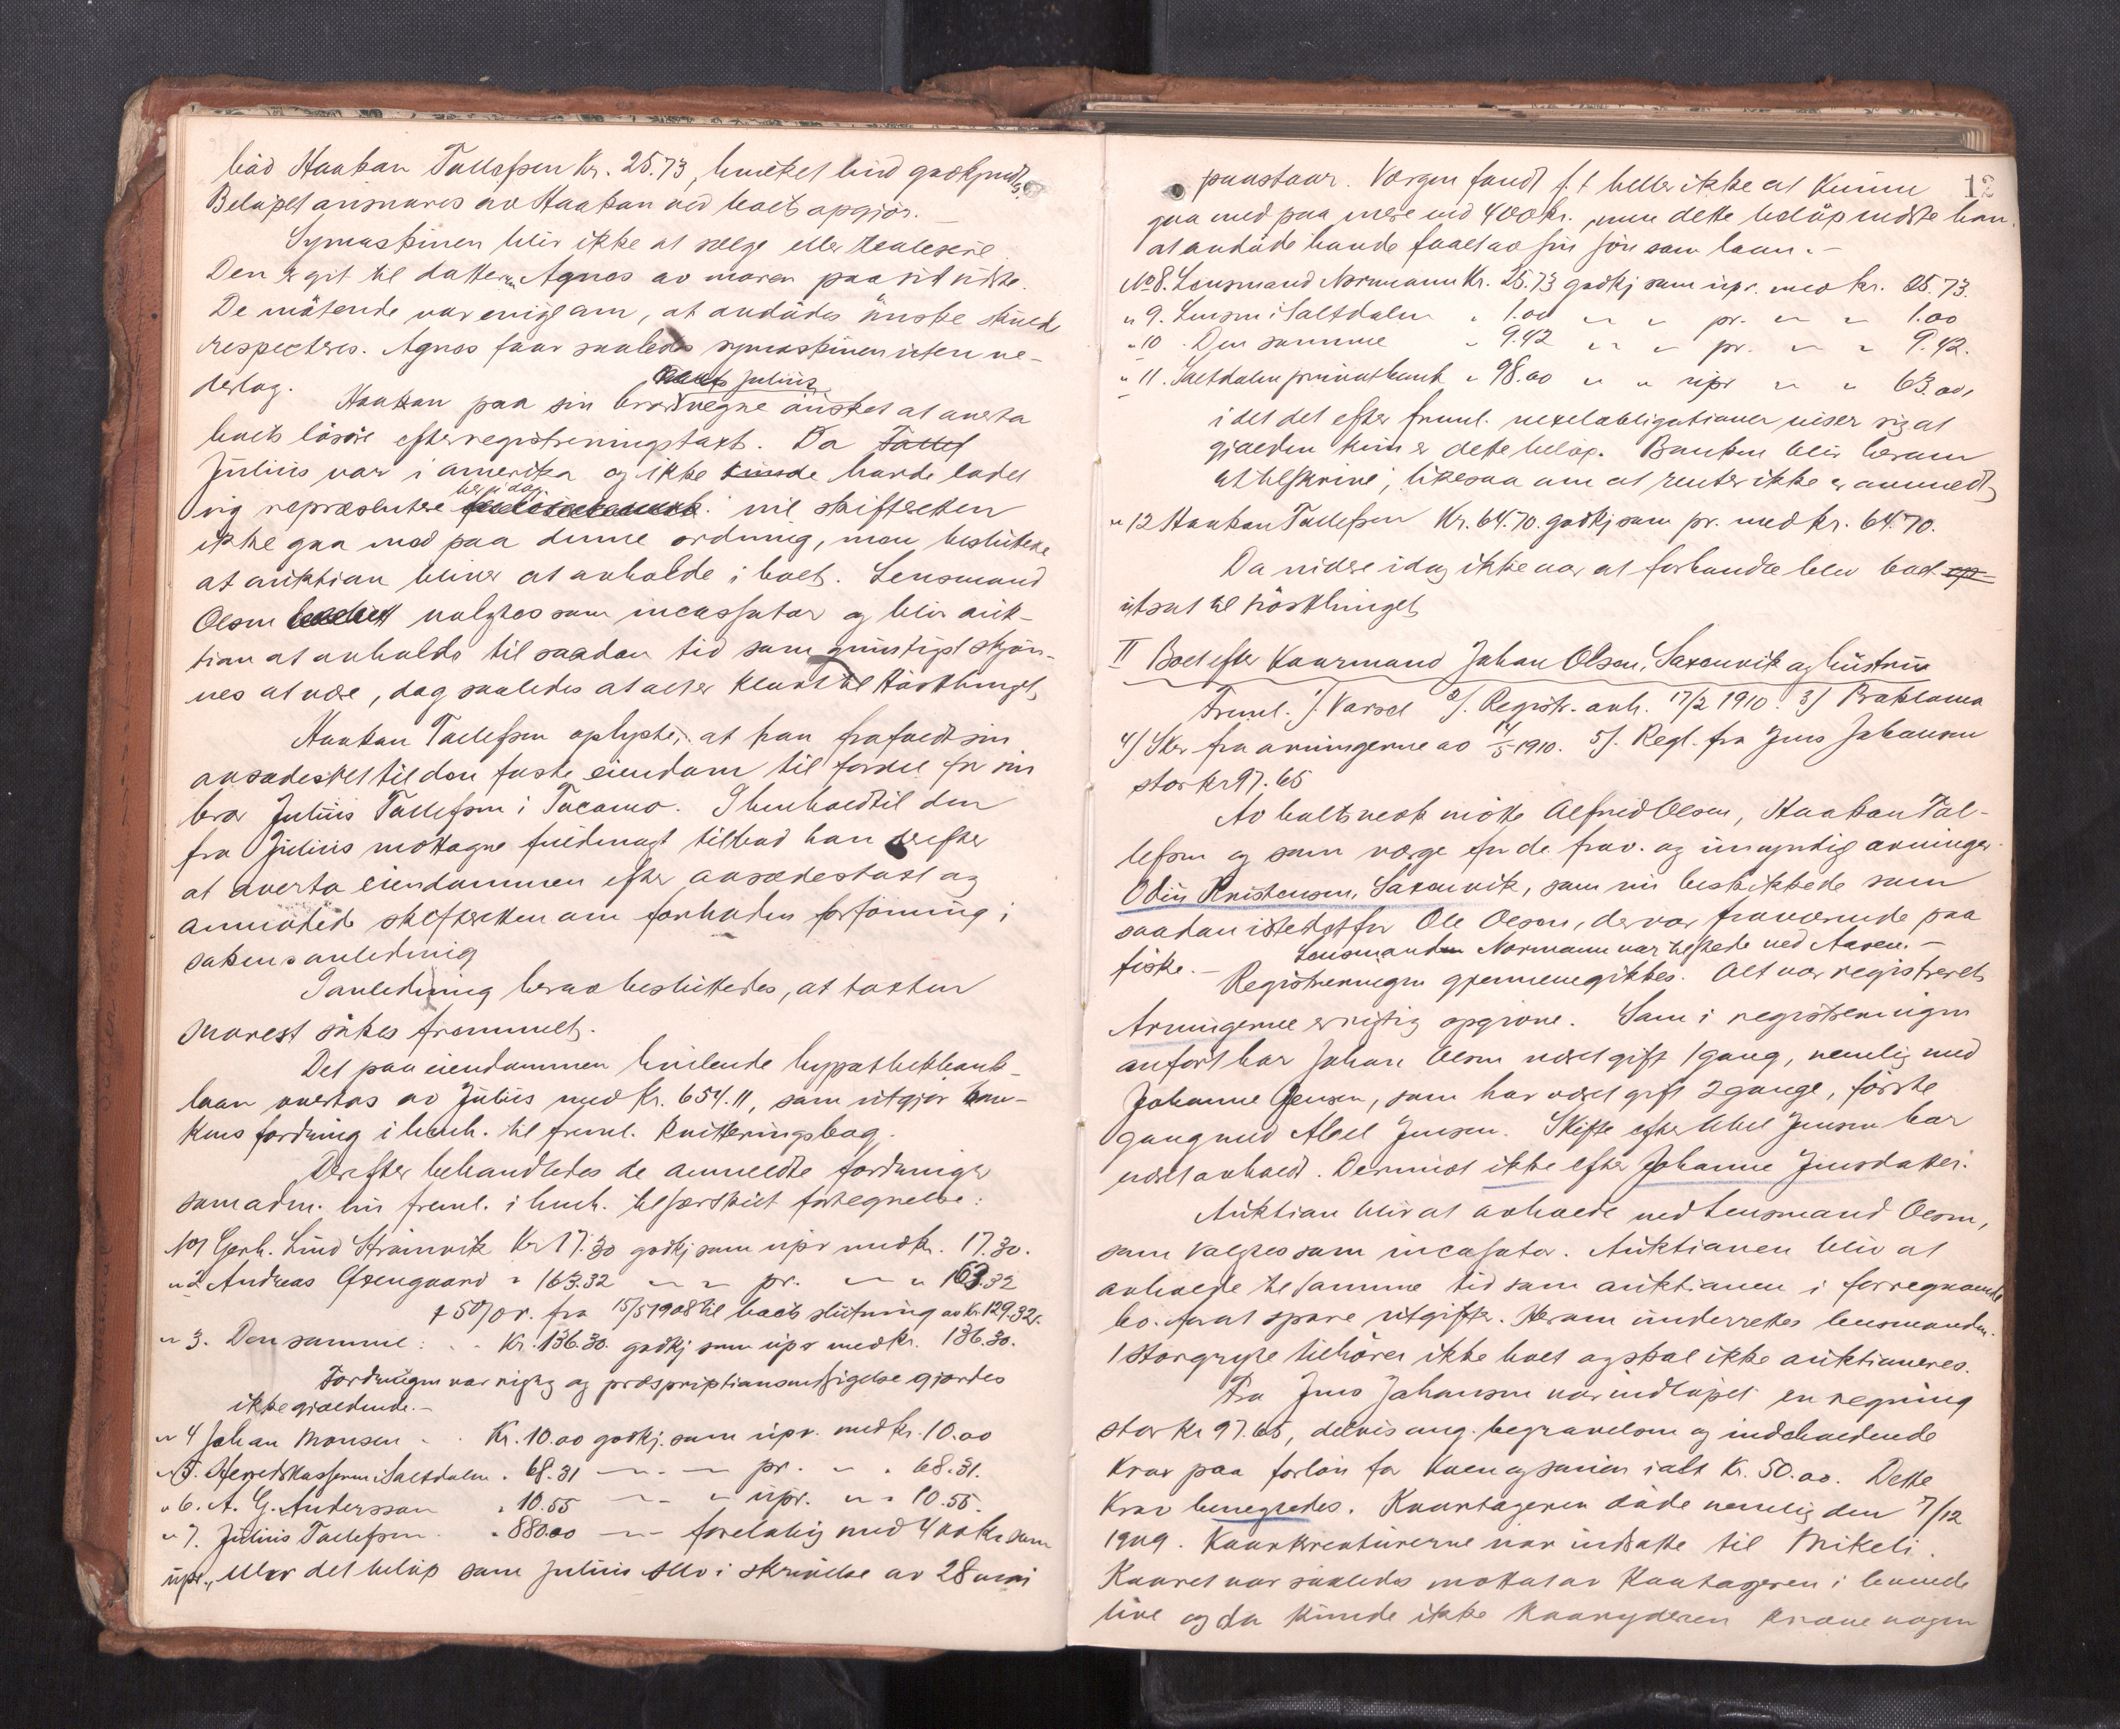 bød Haakan Tollefsen Kr. 25.73, hvilket bud godkjendtes
Beløpet ansvares av Haakan ved boets opgjør. —
Symaskinen blir ikke at sælge eller realisere
Den er git til datteren Agnes av moren paa sit sidste.
De møtende var enige om, at avdødes ønske skulde
respecteres. Agnes faar saaledes symaskinen uten ve-
derlag.
Julius
Haakan paa sin brors vegne ønsket at overta
boets løsøre efter registreringstaxt. Da Tollef
Julius var i amerika og ikke kunde havde ladet
her idag
sig repræsentere vil skifteretten
ikke gaa med paa denne ordning, men besluttede
at auktion bliver at avholde i boet. Lensmand
Olsen valgtes som incassator og blir auk-
tion at avholde til saadan tid som gunstigst skjøn-
nes at være, dog saaledes at alt er klart til Høstthinget.
Haakan Tollefsen oplyste, at han frafaldt sin
aasædesret til den faste eiendom til fordel for sin
bror Julius Tollefsen i Tacoma. I henhold til den
fra Julius mottagne fuldmagt tilbød han derefter
at averta eiendommen efter aasædestaxt og
anmodede skifteretten om fornøden forføining i
sakens anledning
I anledning herav besluttedes, at taxten
snarest søkes fremmet.
Det paa eiendommen hvilende hypothekbank-
laan overtas av Julius med Kr. 654.11, som utgjør ban-
kens fordring i henh. til freml. kvitteringsbog.
Derefter behandledes de anmeldte fordringer
som adm. nu freml. i henh. til særskilt fortegnelse:
No 1 Gerh. Lund Strømvik Kr 17.30 godkj som upr med kr. 17.30.
" 2 Andreas Gfengaard " 163.32 — " — pr. — " — 163.32
+ 5 0/0 r. fra 15/5 1908 til boets slutning av kr. 129.32.
" 3. Den samme: . . Kr. 136.30. godkj som upr med kr. 136.30.
Fordringen var rigtig og præskriptionsindsigelse gjordes
ikke gjældende. —
" 4 Johan Monsen . . Kr. 10.00 godkj. som upr. med kr. 10.00
" 5. Herredskassereren i Saltdalen " 68.31 — " — pr. " " 68.31.
" 6. A. G. Andersson " 10.55 — " — upr. " " 10.55.
" 7. Julius Tollefsen " 880.00 — " — foreløbig med 400 kr som
upr., eller det beløp som Julius selv i skrivelse av 28 mai
12
paastaar. Værgen fandt f. t heller ikke at kunne
gaa med paa mere end 400 kr., men dette beløp vidste han
at avdøde havde faaet av sin søn som laan. —
No 8. Lensmand Normann Kr. 25.73 godkj som upr. med kr. 25.73.
" 9. Lensm i Saltdalen " 1.00 " " pr. " " 1.00
" 10. Den samme " 9.42 " " pr. " " 9.42.
" 11. Saltdalen privatbank " 98.00 " " upr " " 63.00,
idet det efter freml. vexelobligationer viser sig at
gjælden kun er dette beløp. Banken blir herom
at tilskrive; likesaa om at renter ikke er anmeldt.
" 12 Haakan Tollefsen Kr. 64.70. godkj som pr. med kr. 64.70.
Da videre idag ikke var at forhandle blev boet op-
utsat til høstthinget.
II Boet efter kaarmand Johan Olsen, Saxenvik og hustru
Freml. 1/. Varsel 2/. Registr. avh. 17/2 1910. 3/ Proklama
4/ Skr fra arvingerne av 14/5 1910. 5/. Regl. fra Jens Johansen
stor kr 97.65
Av boets vedk møtte Alfred Olsen, Haakan Tol-
lefsen og som værge for de frav. og umyndig arvinger
Odin Kristensen, Saxenvik, som nu beskikkede som
saadan istedetfor Ole Olsen, der var fraværende paa
fiske. — Lensmanden Normann var tilstede ved Aasen. —
Registreringen gjennemgikkes. Alt var registreret.
Arvingerne er rigtig opgivne. Som i registreringen
anført har Johan Olsen været gift 1 gang, nemlig med
Johanne Jensen, som har været gift 2 gange, første
gang med Abel Jensen. Skifte efter Abel Jensen har
været avholdt. Derimot ikke efter Johanne Jensdatter.
Auktion blir at avholde ved Lensmand Olsen,
som valgtes som incasator. Auktionen blir at
avholde til samme tid som auktionen i foregaaende
bo. forat spare utgifter. Herom underrettes lensmanden.
1 storgryte tilhører ikke boet og skal ikke auktioneres.
Fra Jens Johansen var indløpet en regning
stor kr 97.65, delvis ang. begravelsen og indeholdende
krav paa forløn for kuen og sauen ialt kr. 50.00. Dette
krav benegtedes. Kaartageren døde nemlig den 7/12
1909. Kaarkreaturerne var indsatte til Mikeli.
Kaaret var saaledes mottat av Kaartageren i levende
live og da kunde ikke kaaryderen kræve nogen